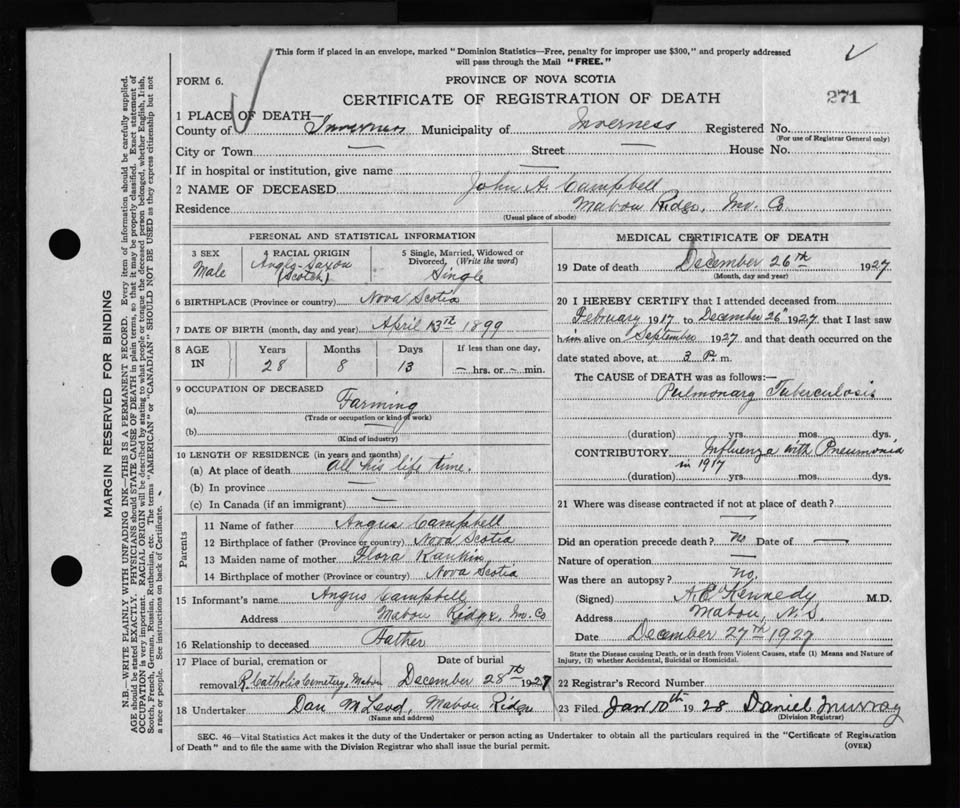 This form if placed in an envelope, marked "Dominion Statistics—Free, penalty for improper use $300," and properly addressed
will pass through the Mail "FREE."
FORM 6.
PROVINCE OF NOVA SCOTIA
CERTIFICATE OF REGISTRATION OF DEATH
271
1 PLACE OF DEATH—
County of Inverness Municipality of Inverness Registered No.
(For use of Registrar General only)
City or Town — Street — House No.
If in hospital or institution, give name —
2 NAME OF DECEASED John A. Campbell
Residence Mabou Ridge, Inv. Co.
(Usual place of abode)
PERSONAL AND STATISTICAL INFORMATION
3 SEX Male
4 RACIAL ORIGIN Anglo-Saxon (Scotch)
5 Single, Married, Widowed or Divorced, (Write the word) Single
6 BIRTHPLACE (Province or country) Nova Scotia
7 DATE OF BIRTH (month, day and year) April 13th 1899
8 AGE IN Years 28 Months 8 Days 13 If less than one day, — hrs. or — min.
9 OCCUPATION OF DECEASED
(a) Farming
(Trade or occupation or kind of work)
(b) —
(Kind of industry)
10 LENGTH OF RESIDENCE (in years and months)
(a) At place of death All his life time.
(b) In province —
(c) In Canada (if an immigrant) —
Parents
11 Name of father Angus Campbell
12 Birthplace of father (Province or country) Nova Scotia
13 Maiden name of mother Flora Rankin
14 Birthplace of mother (Province or country) Nova Scotia
15 Informant's name Angus Campbell
Address Mabou Ridge, Inv. Co
16 Relationship to deceased Father
17 Place of burial, cremation or removal R. Catholic Cemetery, Mabou Date of burial December 28th 1927
18 Undertaker Dan McLeod, Mabou Ridge
(Name and address)
MEDICAL CERTIFICATE OF DEATH
19 Date of death December 26th 1927
(Month, day and year)
20 I HEREBY CERTIFY that I attended deceased from
February 1917 to December 26th 1927, that I last saw
him alive on September 1927 and that death occurred on the
date stated above, at 3 P. m.
The CAUSE OF DEATH was as follows:—
Pulmonary Tuberculosis
(duration) yrs. mos. dys.
CONTRIBUTORY Influenza with Pneumonia
in 1917
(duration) yrs. mos. dys.
21 Where was disease contracted if not at place of death?
—
Did an operation precede death? No Date of —
Nature of operation —
Was there an autopsy? No.
(Signed) A.E. Kennedy M.D.
Address Mabou, N.S.
Date December 27th 1927
State the Disease causing Death, or in death from Violent Causes, state (1) Means and Nature of
Injury, (2) whether Accidental, Suicidal or Homicidal.
22 Registrar's Record Number
23 Filed Jan 10th 1928 Daniel Murray
(Division Registrar)
SEC. 46—Vital Statistics Act makes it the duty of the Undertaker or person acting as Undertaker to obtain all the particulars required in the "Certificate of Registration
of Death" and to file the same with the Division Registrar who shall issue the burial permit.
(OVER)
MARGIN RESERVED FOR BINDING
N.B.—WRITE PLAINLY WITH UNFADING INK—THIS IS A PERMANENT RECORD. Every item of information should be carefully supplied.
AGE should be stated EXACTLY. PHYSICIANS should STATE CAUSE OF DEATH in plain terms, so that it may be properly classified. Exact statement of
OCCUPATION is very important. RACIAL ORIGIN will be described by stating to what people or tongue the deceased person belonged, whether English, Irish,
Scotch, French, German, Russian, Ruthenian, etc. The terms "AMERICAN" or "CANADIAN" SHOULD NOT BE USED as they express citizenship but not
a race or people. See instructions on back of Certificate.